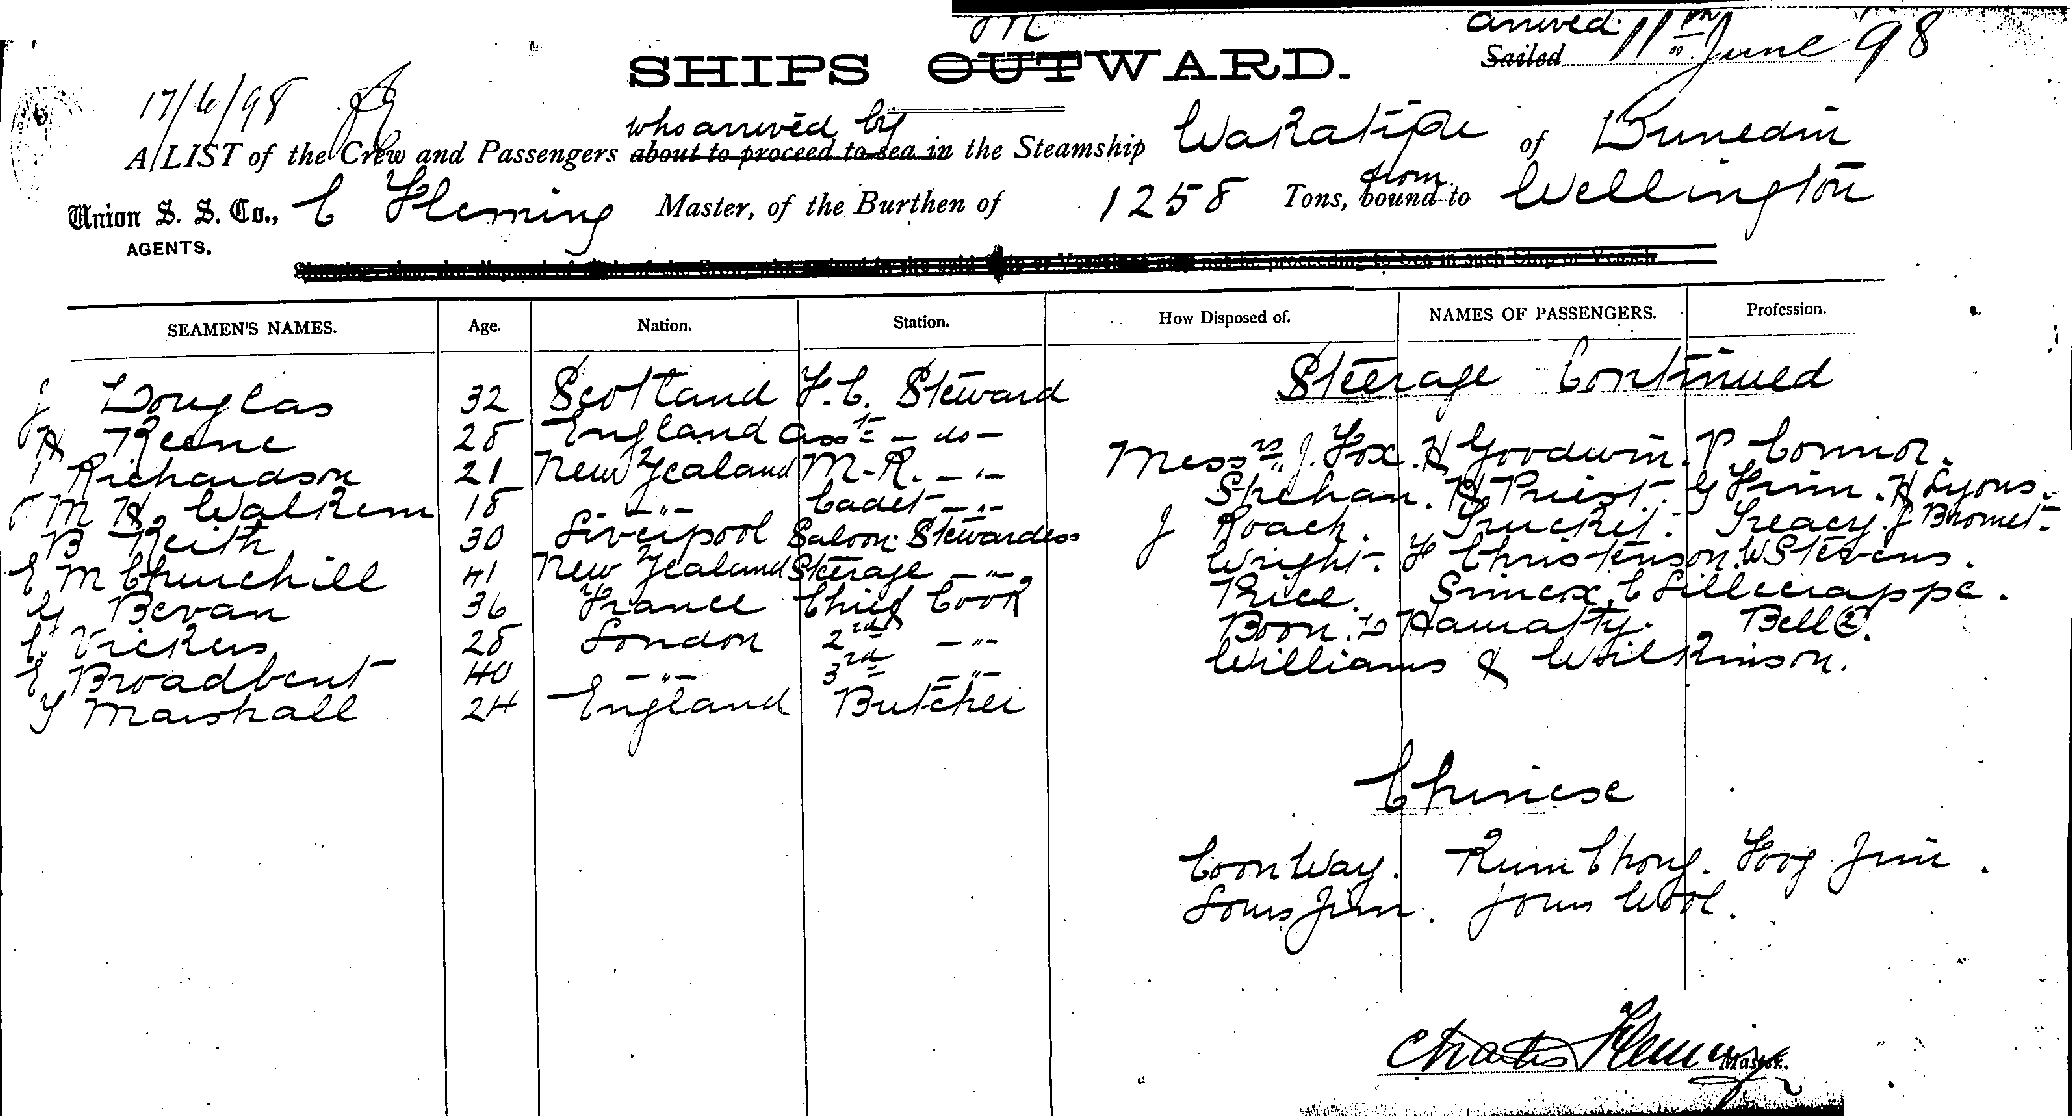 In
arrived 11th June 98
Sailed
SHIPS OUTWARD.
17/6/98
who arrived by
A LIST of the Crew and Passengers about to proceed to sea in the Steamship Wakatipu of Dunedin
from
Union S. S. Co., C Fleming Master, of the Burthen of 1258 Tons, bound to Wellington
AGENTS.
SEAMEN'S NAMES. Age. Nation. Station. How Disposed of. NAMES OF PASSENGERS. Profession.
Steerage Continued
J Douglas 32 Scotland F.C. Steward
H Keene 28 England Asst - do -
Richardson 21 New Zealand M-R. - " -
M H. Walkem 18 - " - Cadet - " -
B Keith 30 Liverpool Saloon Stewardess
E M Churchill 41 New Zealand Steerage - " -
G Bevan 36 France Chief Cook
C Vickers 28 London 2nd - " -
E Broadbent 40 - " - 3rd - " -
T Marshall 24 England Butcher
Messrs J. Fox. H Goodwin. P Connor.
Shehan. H Priest. G Finn. H Lyons.
J Roach. Trucket. Treacy. J
Wright. F Christenson. W Stevens.
Price. Simex. C Lillicrappe.
Boon. Hamatty. Bell (2).
Williams & Wilkinson.
Chinese
Coon Way. Kum Chong. Foog Jim.
Louis Jim. Jouis Wool.
Charles Fleming
Master.